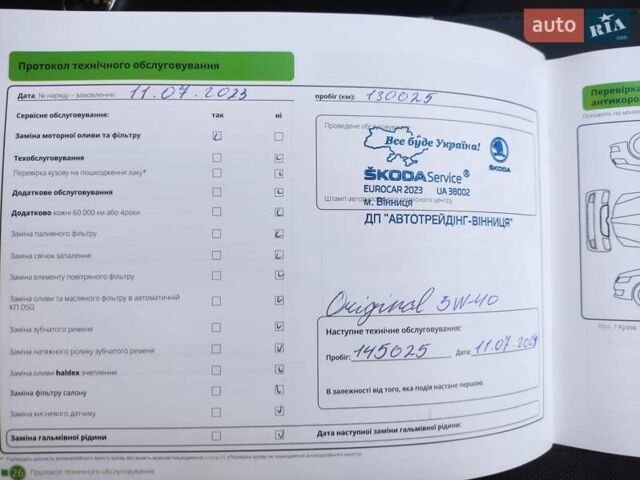 auto RIA .com
Протокол технічного обслуговування
Дата, № наряду – замовлення: 11.07.2023 пробіг (км): 130025
Сервісне обслуговування: так ні
Заміна моторної оливи та фільтру
Техобслуговування
Перевірка кузову на пошкодження лаку*
Додаткове обслуговування
Додатково кожні 60 000 км або 4роки
Заміна паливного фільтру
Заміна свічок запалення
Заміна елементу повітряного фільтру
Заміна оливи та масляного фільтру в автоматичній
КП DSG
Заміна зубчатого ременя
Заміна натяжного ролику зубчатого ременя
Заміна оливи haldex зчеплення
Заміна фільтру салону
Заміна кисневого датчику
Заміна гальмівної рідини
Проведене обслуговування
Все буде Україна!
ŠKODA
ŠKODA Service®
EUROCAR 2023 UA 38002
Штамп сервісного центру
м. Вінниця
ДП "АВТОТРЕЙДІНГ-ВІННИЦЯ"
Original 5W-40
Наступне технічне обслуговування:
Пробіг: 145025 Дата: 11.07.2024
В залежності від того, яка подія настане першою.
Дата наступної заміни гальмівної рідини
26 Протокол технічного обслуговування
Перевірка
антикоро
Кузов